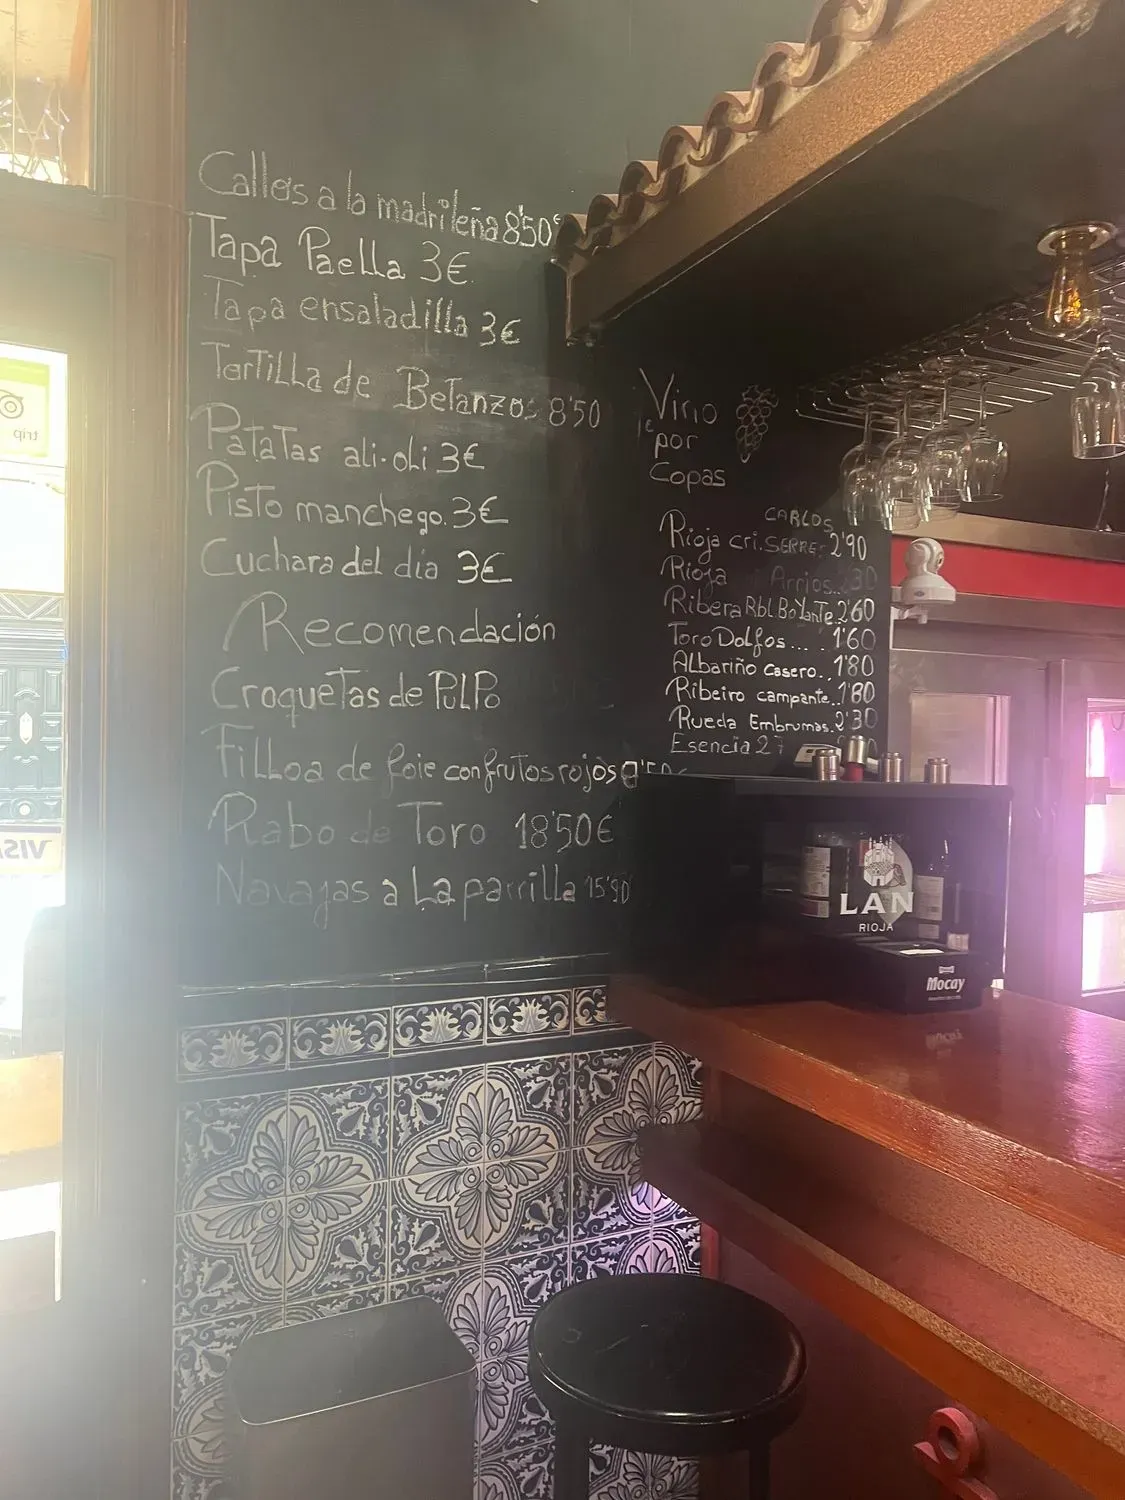 Callos a la madrileña 8'50€
Tapa Paella 3€
Tapa ensaladilla 3€
Tortilla de Betanzos 8'50
Patatas ali-oli 3€
Pisto manchego. 3€
Cuchara del dia 3€
Recomendación
Croquetas de PULPO
Filloa de foie con frutos rojos
Rabo de Toro 18'50€
Navajas a La parrilla 15'90
Vino
por
Copas
CARLOS
Rioja cri. SERRES 2'90
Rioja Arrios..
Ribera Rbl. Bollante. 2'60
Toro Dolfos.... 1'60
Albariño casero.. 1'80
Ribeiro campante.. 1'80
Rueda Embrumas. 2'30
Esencia 27
LAN
RIOJA
Mocay
trip
VISA